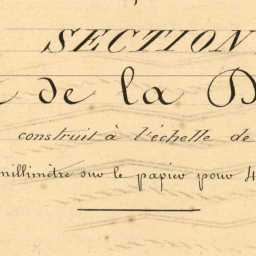 SECTION
de la
construit à l'échelle de
millimètre sur le papier pour 4